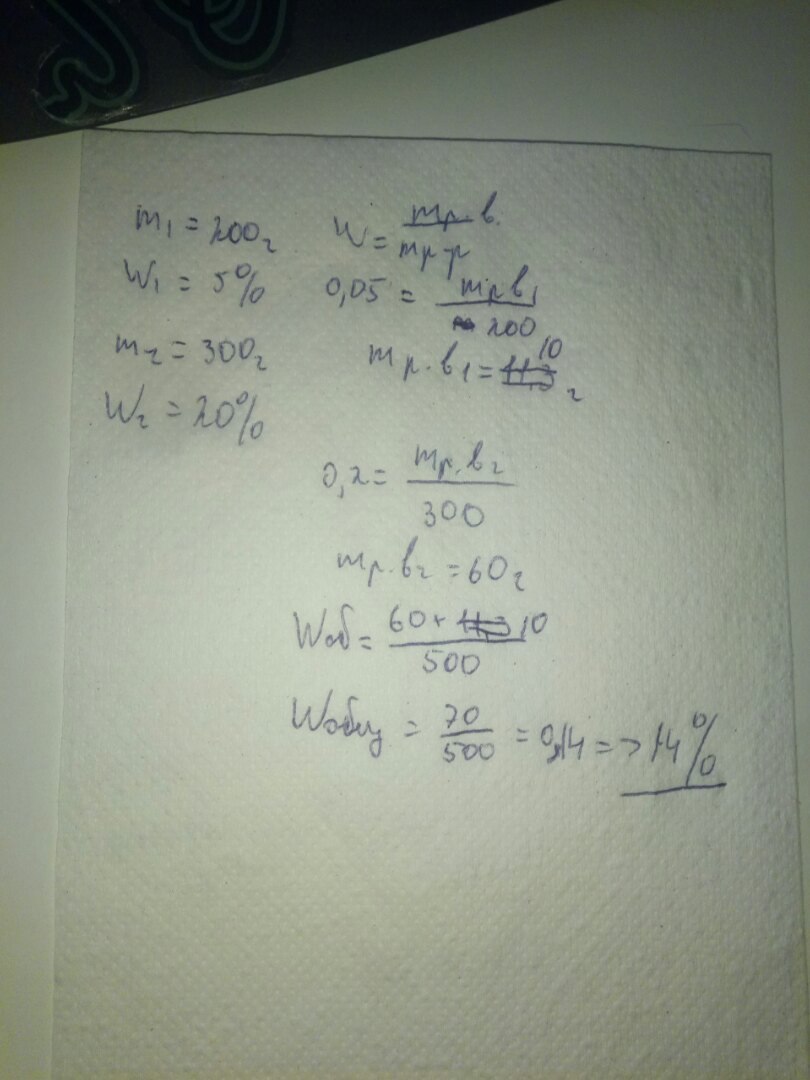 m₁ = 200г
W₁ = 5%
m₂ = 300г
W₂ = 20%
W = mр.в. / mр-р
0,05 = mр.в₁ / 200
mр.в₁ = 10г
0,2 = mр.в₂ / 300
mр.в₂ = 60г
Wоб = 60+ 10 / 500
Wобщ = 70 / 500 = 0,14 => 14%